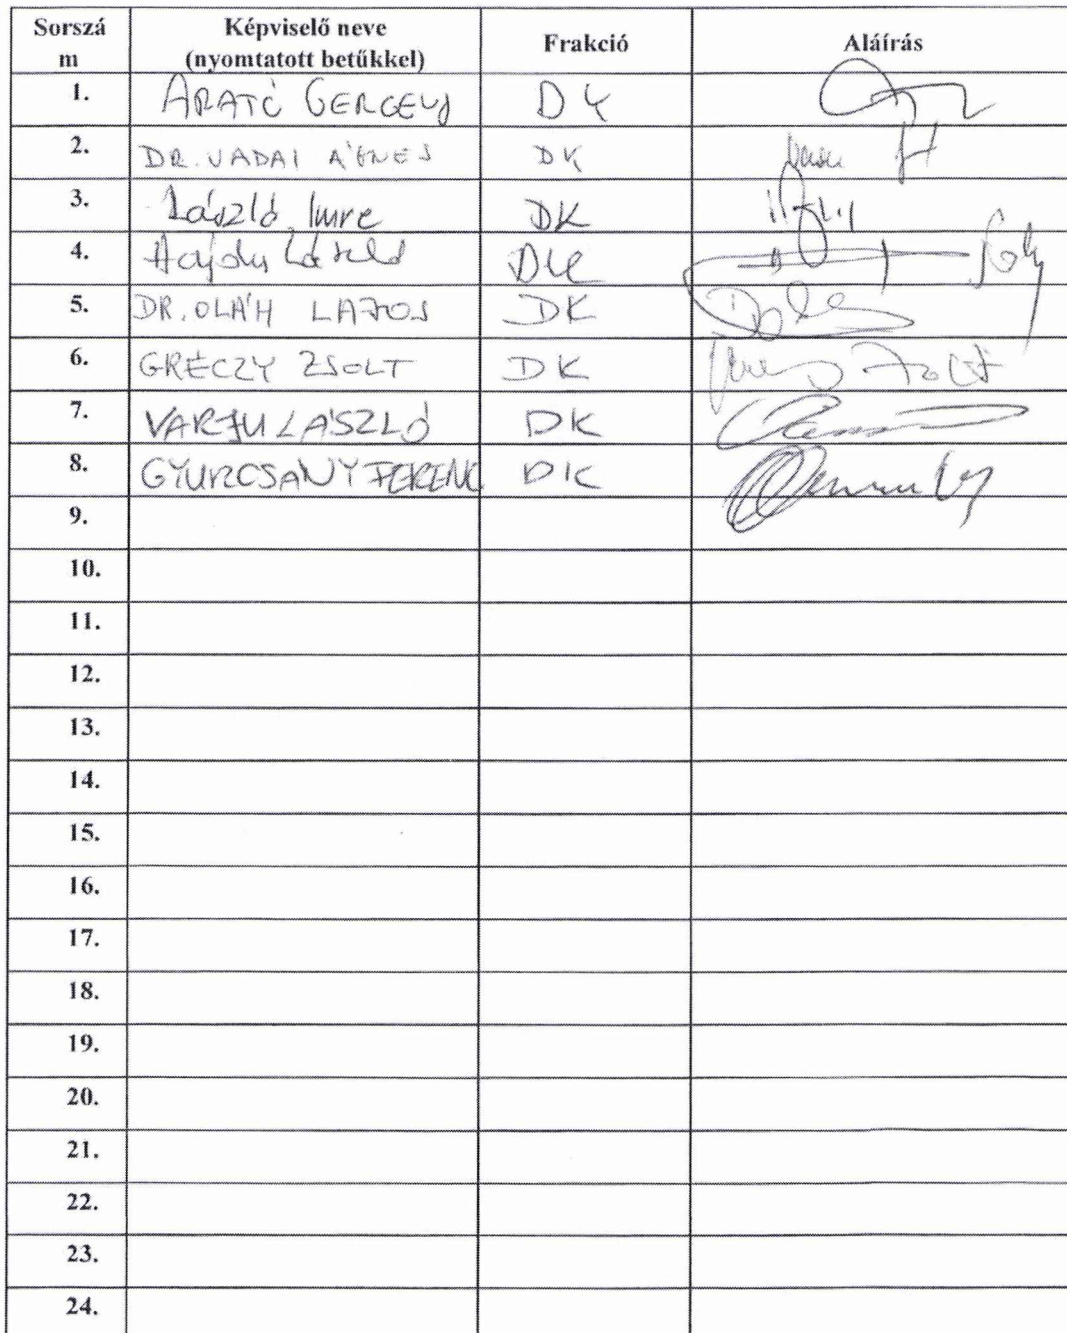 Sorszá
m
Képviselő neve
(nyomtatott betűkkel)
Frakció
Aláírás
1. ARATÓ GERGELY DK
2. DR. VADAI ÁGNES DK
3. László Imre DK
4. Hajdu László DK
5. DR. OLÁH LAJOS DK
6. GRÉCZY ZSOLT DK Zsolt
7. VARJU LÁSZLÓ DK
8. GYURCSÁNY FERENC DK
9.
10.
11.
12.
13.
14.
15.
16.
17.
18.
19.
20.
21.
22.
23.
24.